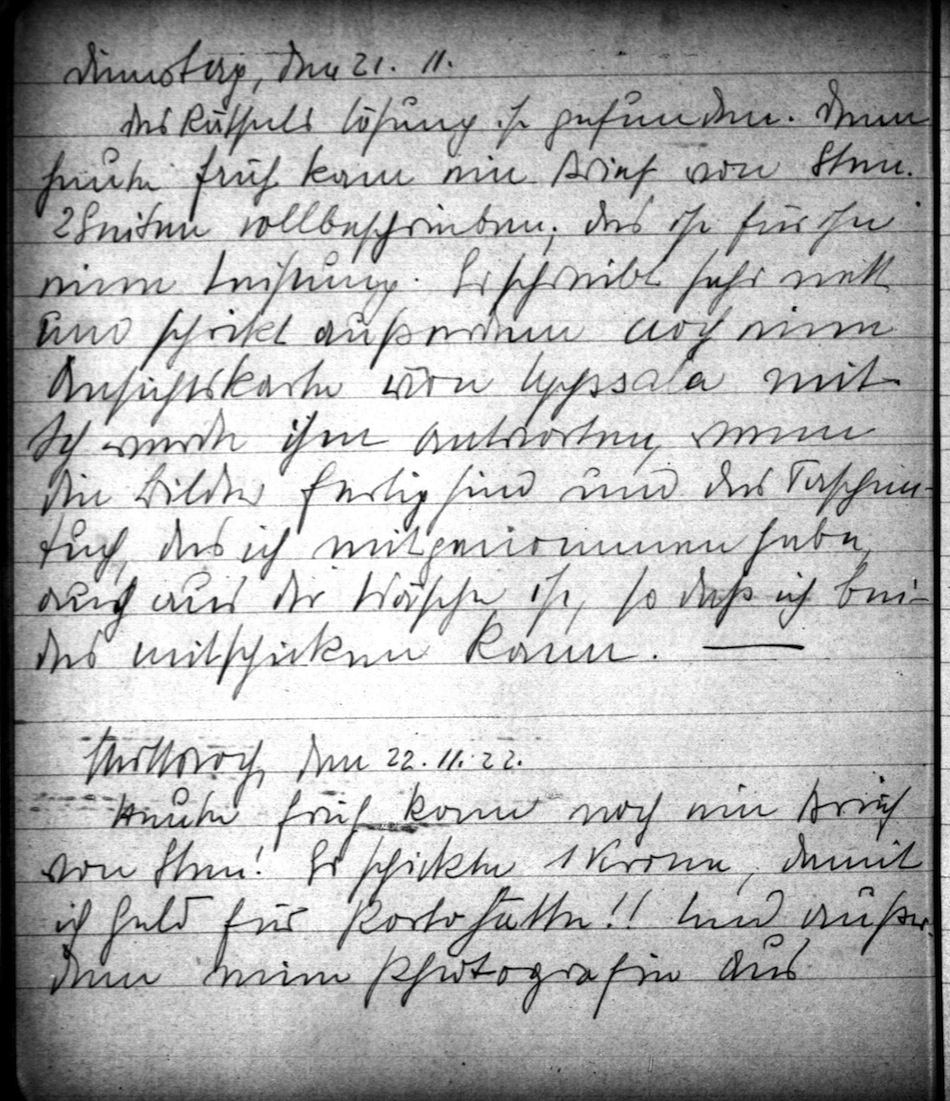 Dienstag, den 21. 11.
Des Rätsels Lösung ist gefunden. Denn
heute früh kam ein Brief von Sten.
2 Seiten vollbeschrieben, das ist für ihn
eine Leistung. Er schreibt sehr nett
und schickt außerdem noch eine
Ansichtskarte von Uppsala mit.
Ich werde ihm antworten, wenn
die Bilder fertig sind und das Taschen-
tuch, das ich mitgenommen habe,
auch aus der Wäsche ist, so daß ich bei-
des mitschicken kann. —
Mittwoch, den 22. 11. 22.
Heute früh kam noch ein Brief
von Sten! Er schickte 1 Krone, damit
ich Geld für Porto hätte!! Und außer-
dem eine Photografie aus